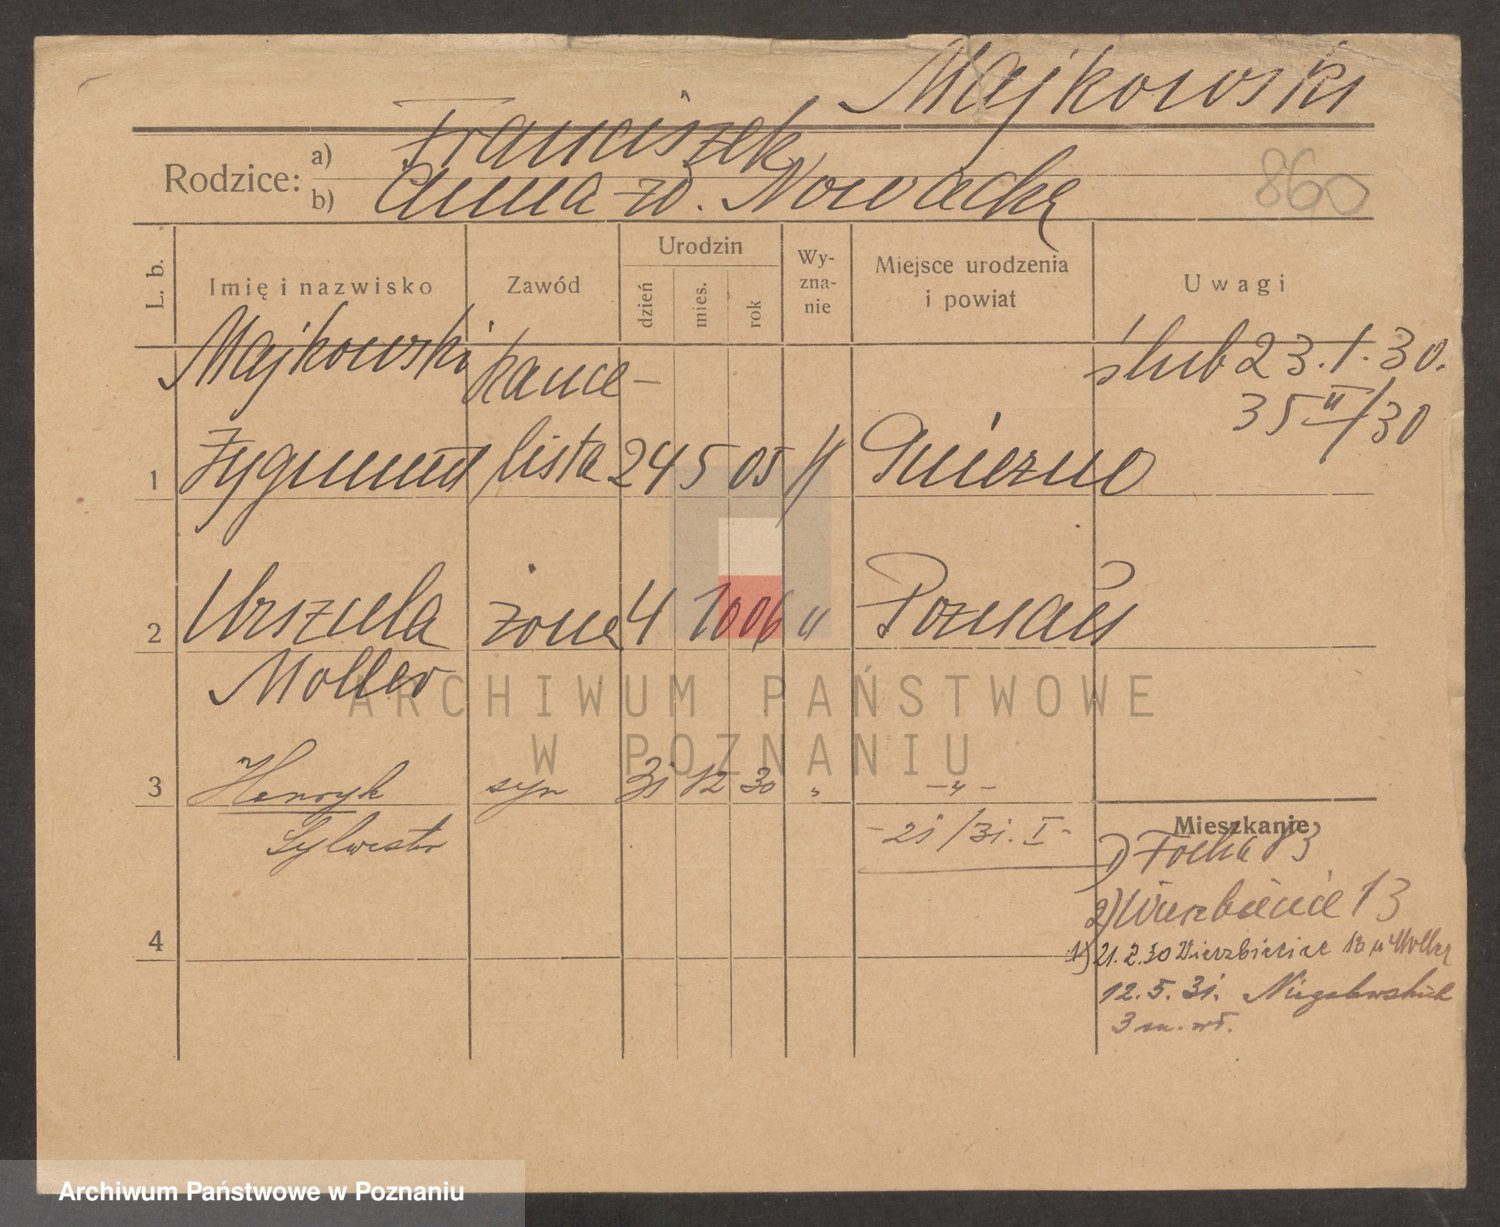 Majkowski
Rodzice: a) Franciszek
b) Anna zd. Nowacka
860
L. b. Imię i nazwisko Zawód Urodzin dzień mies. rok Wy-zna-nie Miejsce urodzenia i powiat Uwagi
Majkowski kance- ślub 23.1.30.
35 II/30
1 Zygmunt lista 24 5 05 Gniezno
2 Urszula żona 4 10 06 " Poznań
Moller
3 Henryk syn 31 12 30 " -"-
Sylwester -21/31. I-
Mieszkanie
1) Focha 73
2) Wierzbięcice 13
4
21.2.30 Wierzbięcice 13 u Moller
12.5.31. Niegolewskich
3 m. wł.
ARCHIWUM PAŃSTWOWE
W POZNANIU
Archiwum Państwowe w Poznaniu